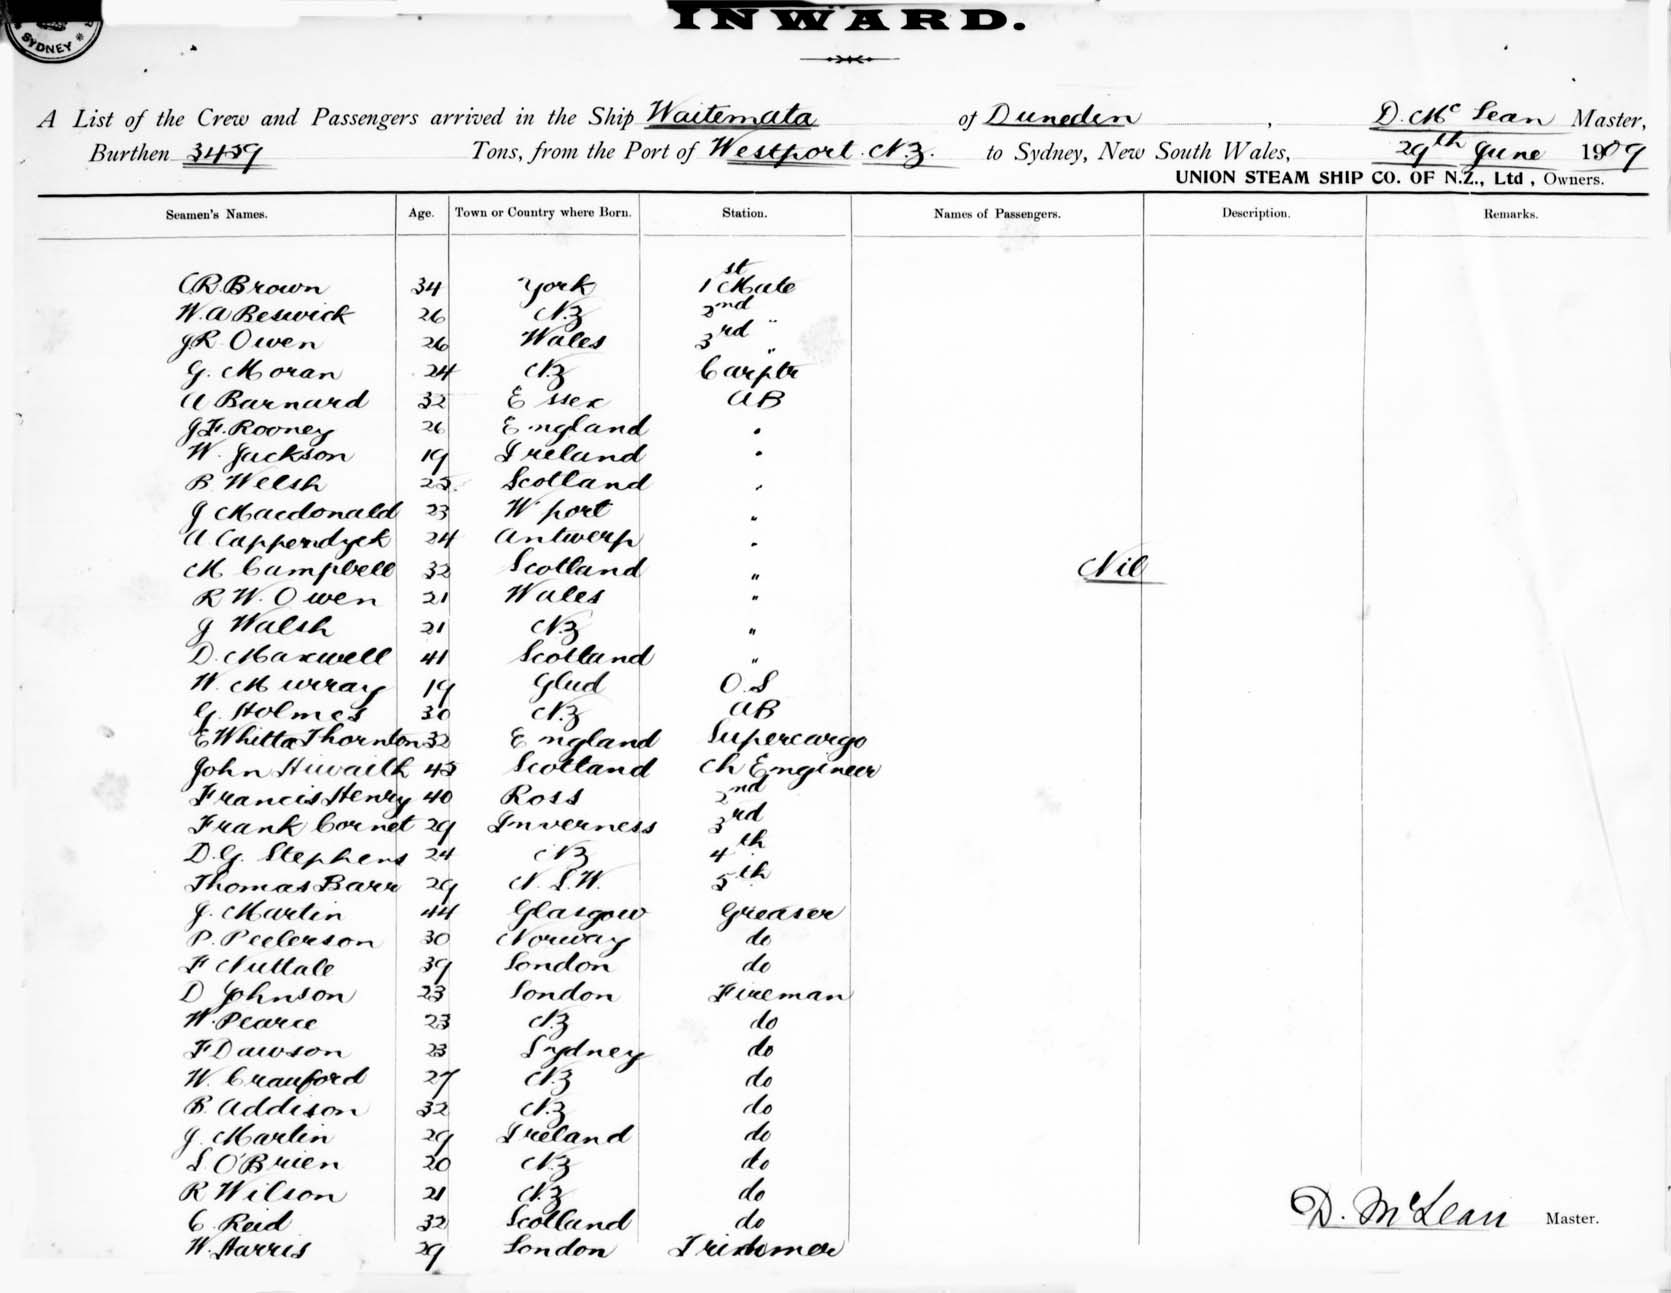 SYDNEY
INWARD.
A List of the Crew and Passengers arrived in the Ship Waitemata of Duneden, D. Mc Lean Master,
Burthen 3459 Tons, from the Port of Westport. N.Z. to Sydney, New South Wales, 29th June 1909
UNION STEAM SHIP CO. OF N.Z., Ltd, Owners.
Seamen's Names. Age. Town or Country where Born. Station. Names of Passengers. Description. Remarks.
C.R. Brown 34 York 1st Mate
W. A Beswick 26 N.Z 2nd "
J.R. Owen 26 Wales 3rd "
G. Moran 24 N.Z Carptr
A Barnard 32 Essex AB
J.F. Rooney 26 England "
W. Jackson 19 Ireland "
B Welsh 25 Scotland "
J Macdonald 23 W'port "
A Cappendyck 24 Antwerp "
M Campbell 32 Scotland " Nil
R W. Owen 21 Wales "
J Walsh 21 N.Z "
D. Maxwell 41 Scotland "
W. Murray 19 O.S
G. Holmes 30 N.Z AB
E Whitta Thornton 32 England Supercargo
John 45 Scotland Ch Engineer
Francis Henry 40 Ross 2nd
Frank Cornet 29 Inverness 3rd
D.G. Stephens 24 NZ 4th
Thomas Barr 29 N.S.W. 5th
J. Martin 44 Glasgow Greaser
P. Peterson 30 Norway do
F Nuttall 39 London do
D Johnson 23 London Fireman
W. Pearce 23 N.Z do
F Dawson 23 Sydney do
W. Crauford 27 N.Z do
B. Addison 32 N.Z do
J. Martin 29 Ireland do
S. O'Brien 20 N.Z do
R Wilson 21 N.Z do
C. Reid 32 Scotland do
D. McLean Master.
W. Harris 29 London Trimmer